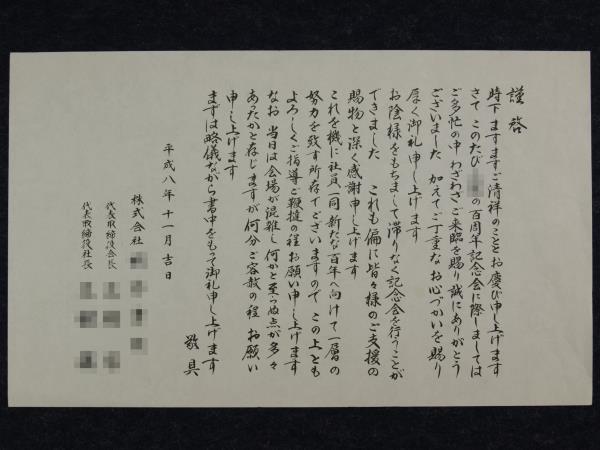 謹啓
時下 ますますご清祥のこととお慶び申し上げます
さて このたび の百周年記念会に際しましては
ご多忙の中 わざわざご来臨を賜り 誠にありがとう
ございました 加えてご丁重なお心づかいを賜り
厚く御礼申し上げます
お陰様をもちまして滞りなく記念会を行うことが
できました これも偏に皆々様のご支援の
賜物と深く感謝申し上げます
これを機に社員一同 新たな百年へ向けて一層の
努力を致す所存でございますので この上とも
よろしくご指導ご鞭撻の程お願い申し上げます
なお 当日は会場が混雑し 何かと至らぬ点が多々
あったかと存じますが何分ご容赦の程 お願い
申し上げます
まずは略儀ながら書中をもって御礼申し上げます
敬具
平成八年十一月吉日
株式会社
代表取締役会長
代表取締役社長